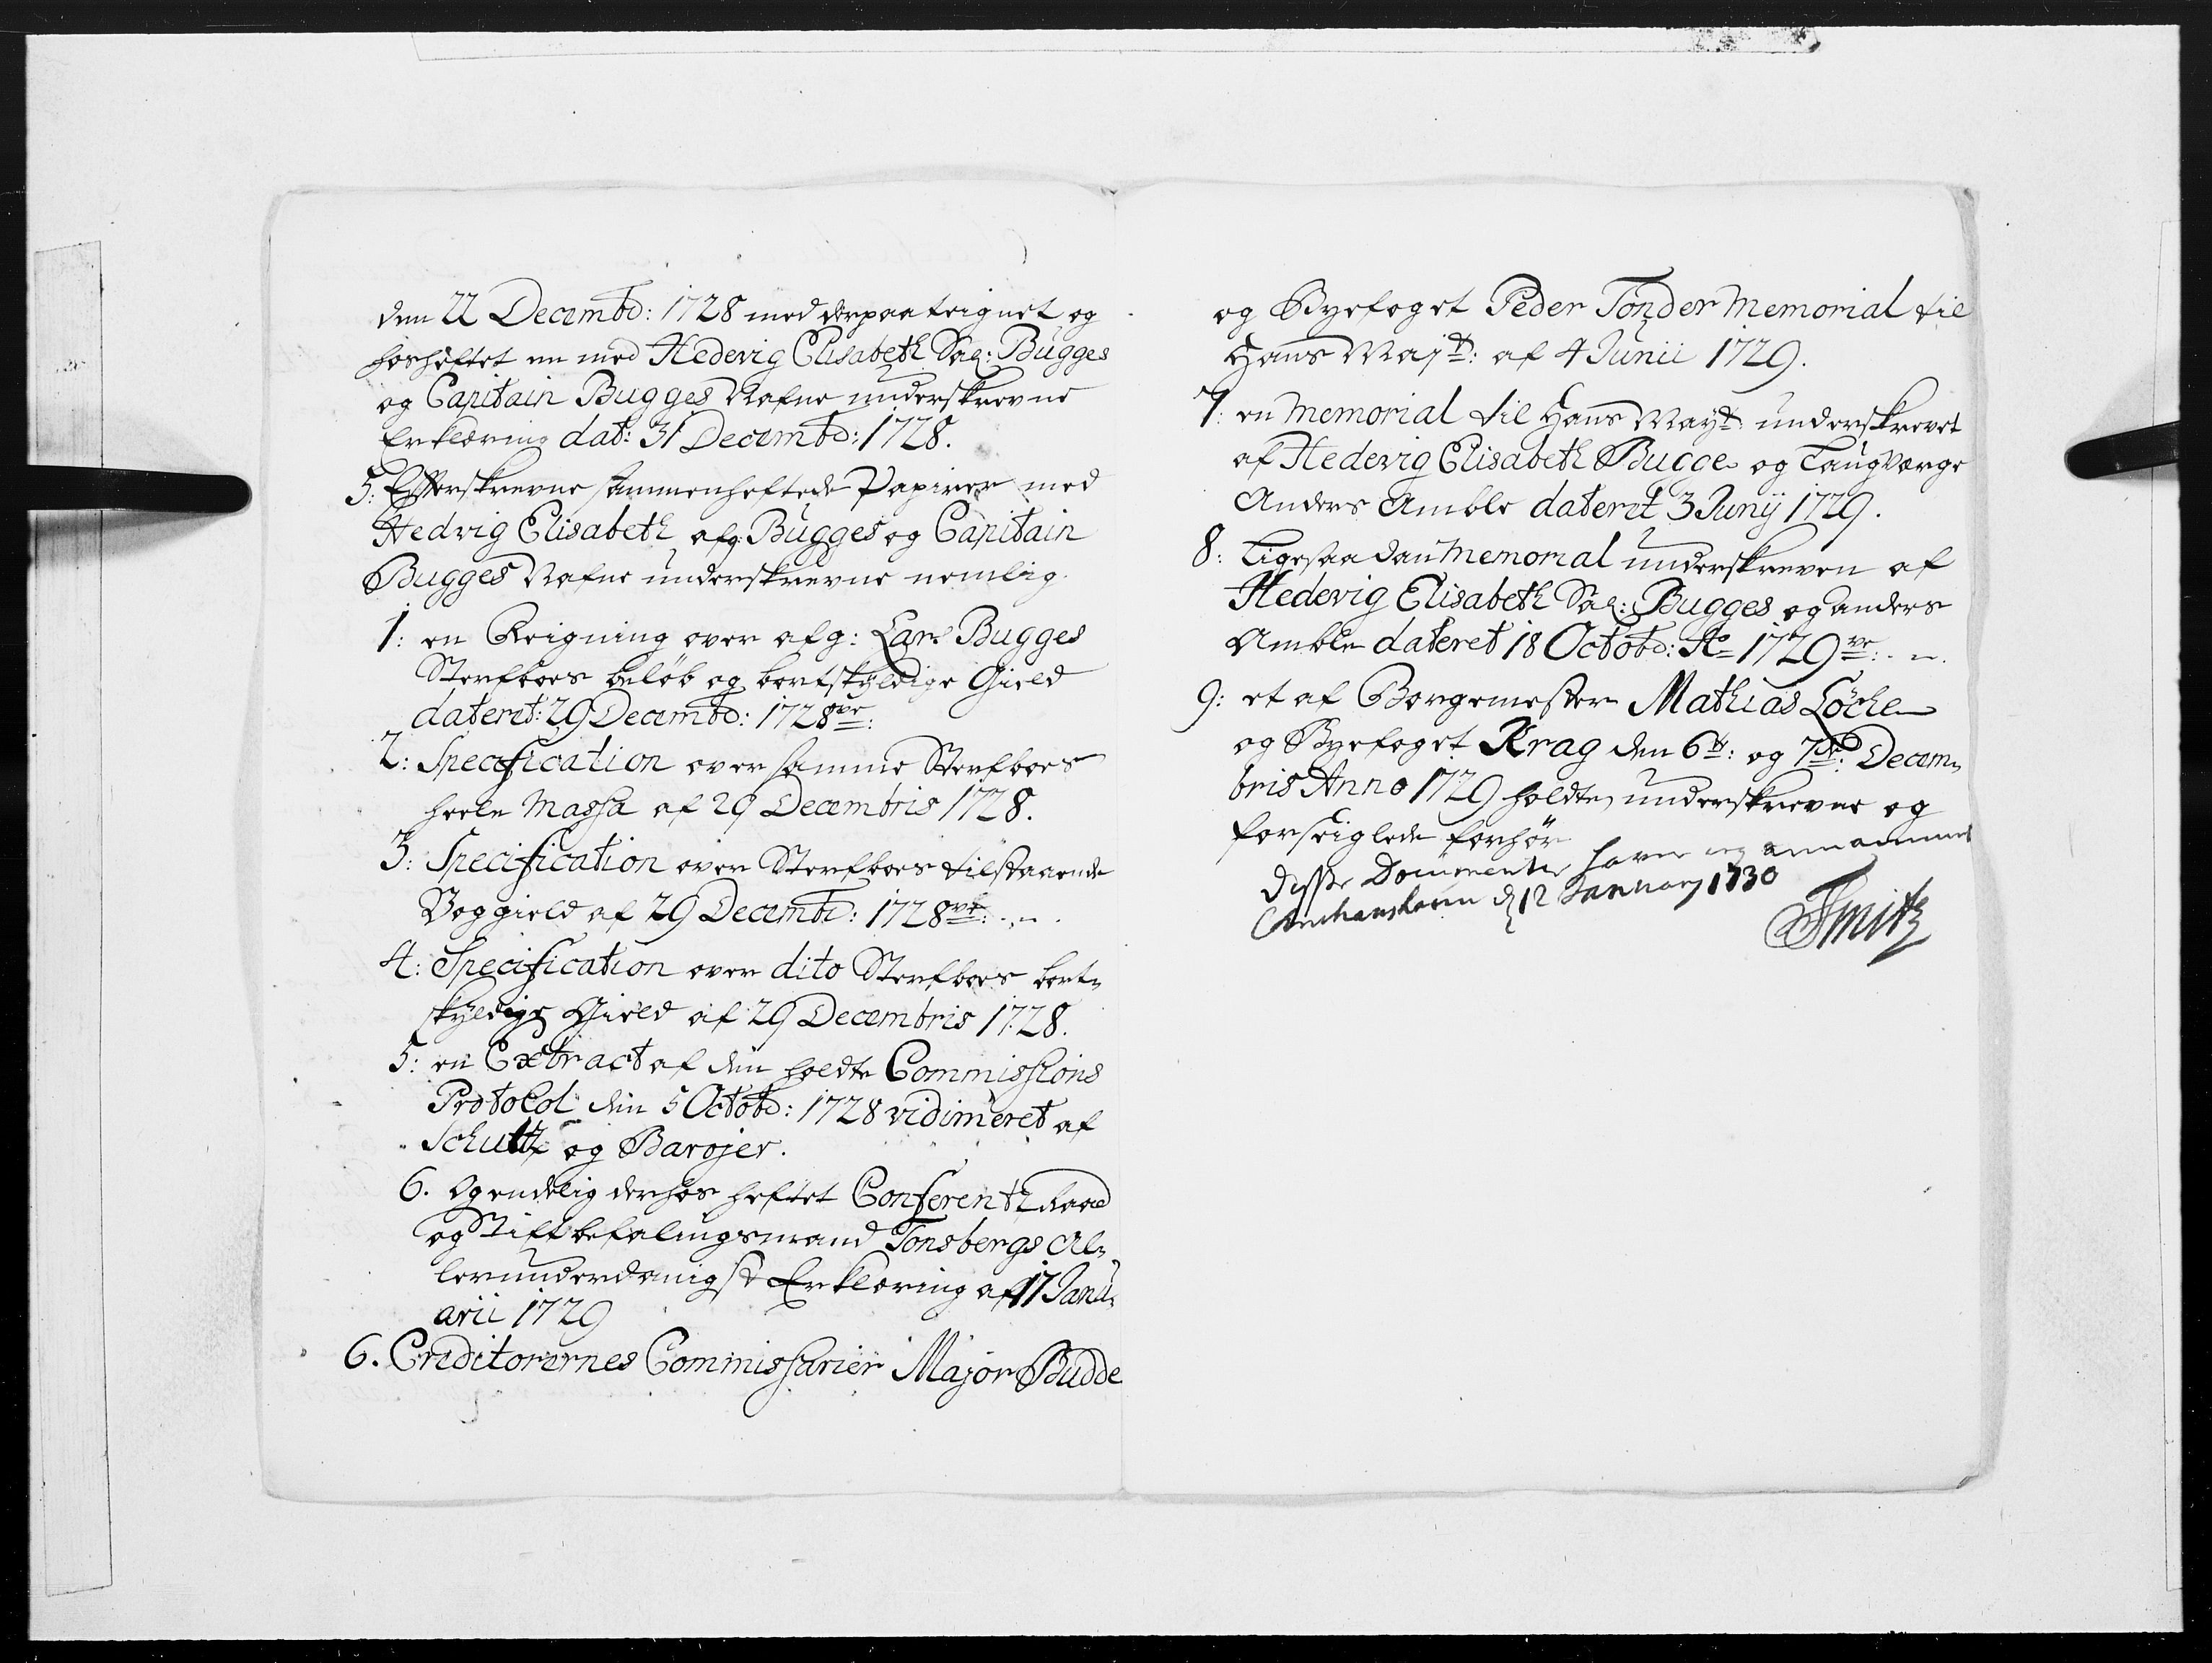 den 22 Decembd: 1728 med derpaa teignet og
hoshæftet en med Hedevig Elisabeth Sal: Bugges
og Capitain Bugges Nafne underskrevne
Erklæring dat: 31 Decembd: 1728.
5: Efterskrevne sammenheftede Papirer med
Hedvig Elisabeth afg: Bugges og Capitain
Bugges Nafne underskrevne nemlig.
1: en Reigning over afg: Lars Bugges
Sterfboes beløb og bortskyldige Gield
dateret: 29 Decembd: 1728ve:
2: Specification over samme Sterfboes
heele Massa af 29 Decembris 1728.
3: Specification over Sterfboes tilstaaende
Boggield af 29 Decembd: 1728ve:
4: Specification over dito Sterfboes bort-
skyldige Gield af 29 Decembris 1728.
5: en Extract af den holdte Commissions
Protokol den 5 Octobd: 1728 vidimeret af
Schultz og Barojer.
6. Og endelig derhos heftet Conferentz Raad
og Stiftbefalingsmand Tonsbergs Al-
lerunderdanigste Erklæring af 17 Janu-
arii 1729
6. Creditorernes Commissarier Major Budde
og Byefoget Peder Tonder Memorial til
Hans Majt: af 4 Junii 1729.
7: en Memorial til Hans Mayt: underskrevet
af Hedevig Elisabeth Bugge og Laugværge
Anders Amble dateret 3 Junij 1729.
8: Ligesaadan Memorial underskreven af
Hedevig Elisabeth Sal: Bugges og Anders
Amble dateret 18 Octobd: Ao 1729ve:
9: et af Borgemester Mathias Löche
og Byefoget Krag den 6te: og 7de: Decem-
bris Anno 1729 holdte, underskrevne og
forseiglede forhør
disse Documenter haver ieg annammet
d 12 January 1730
Smith